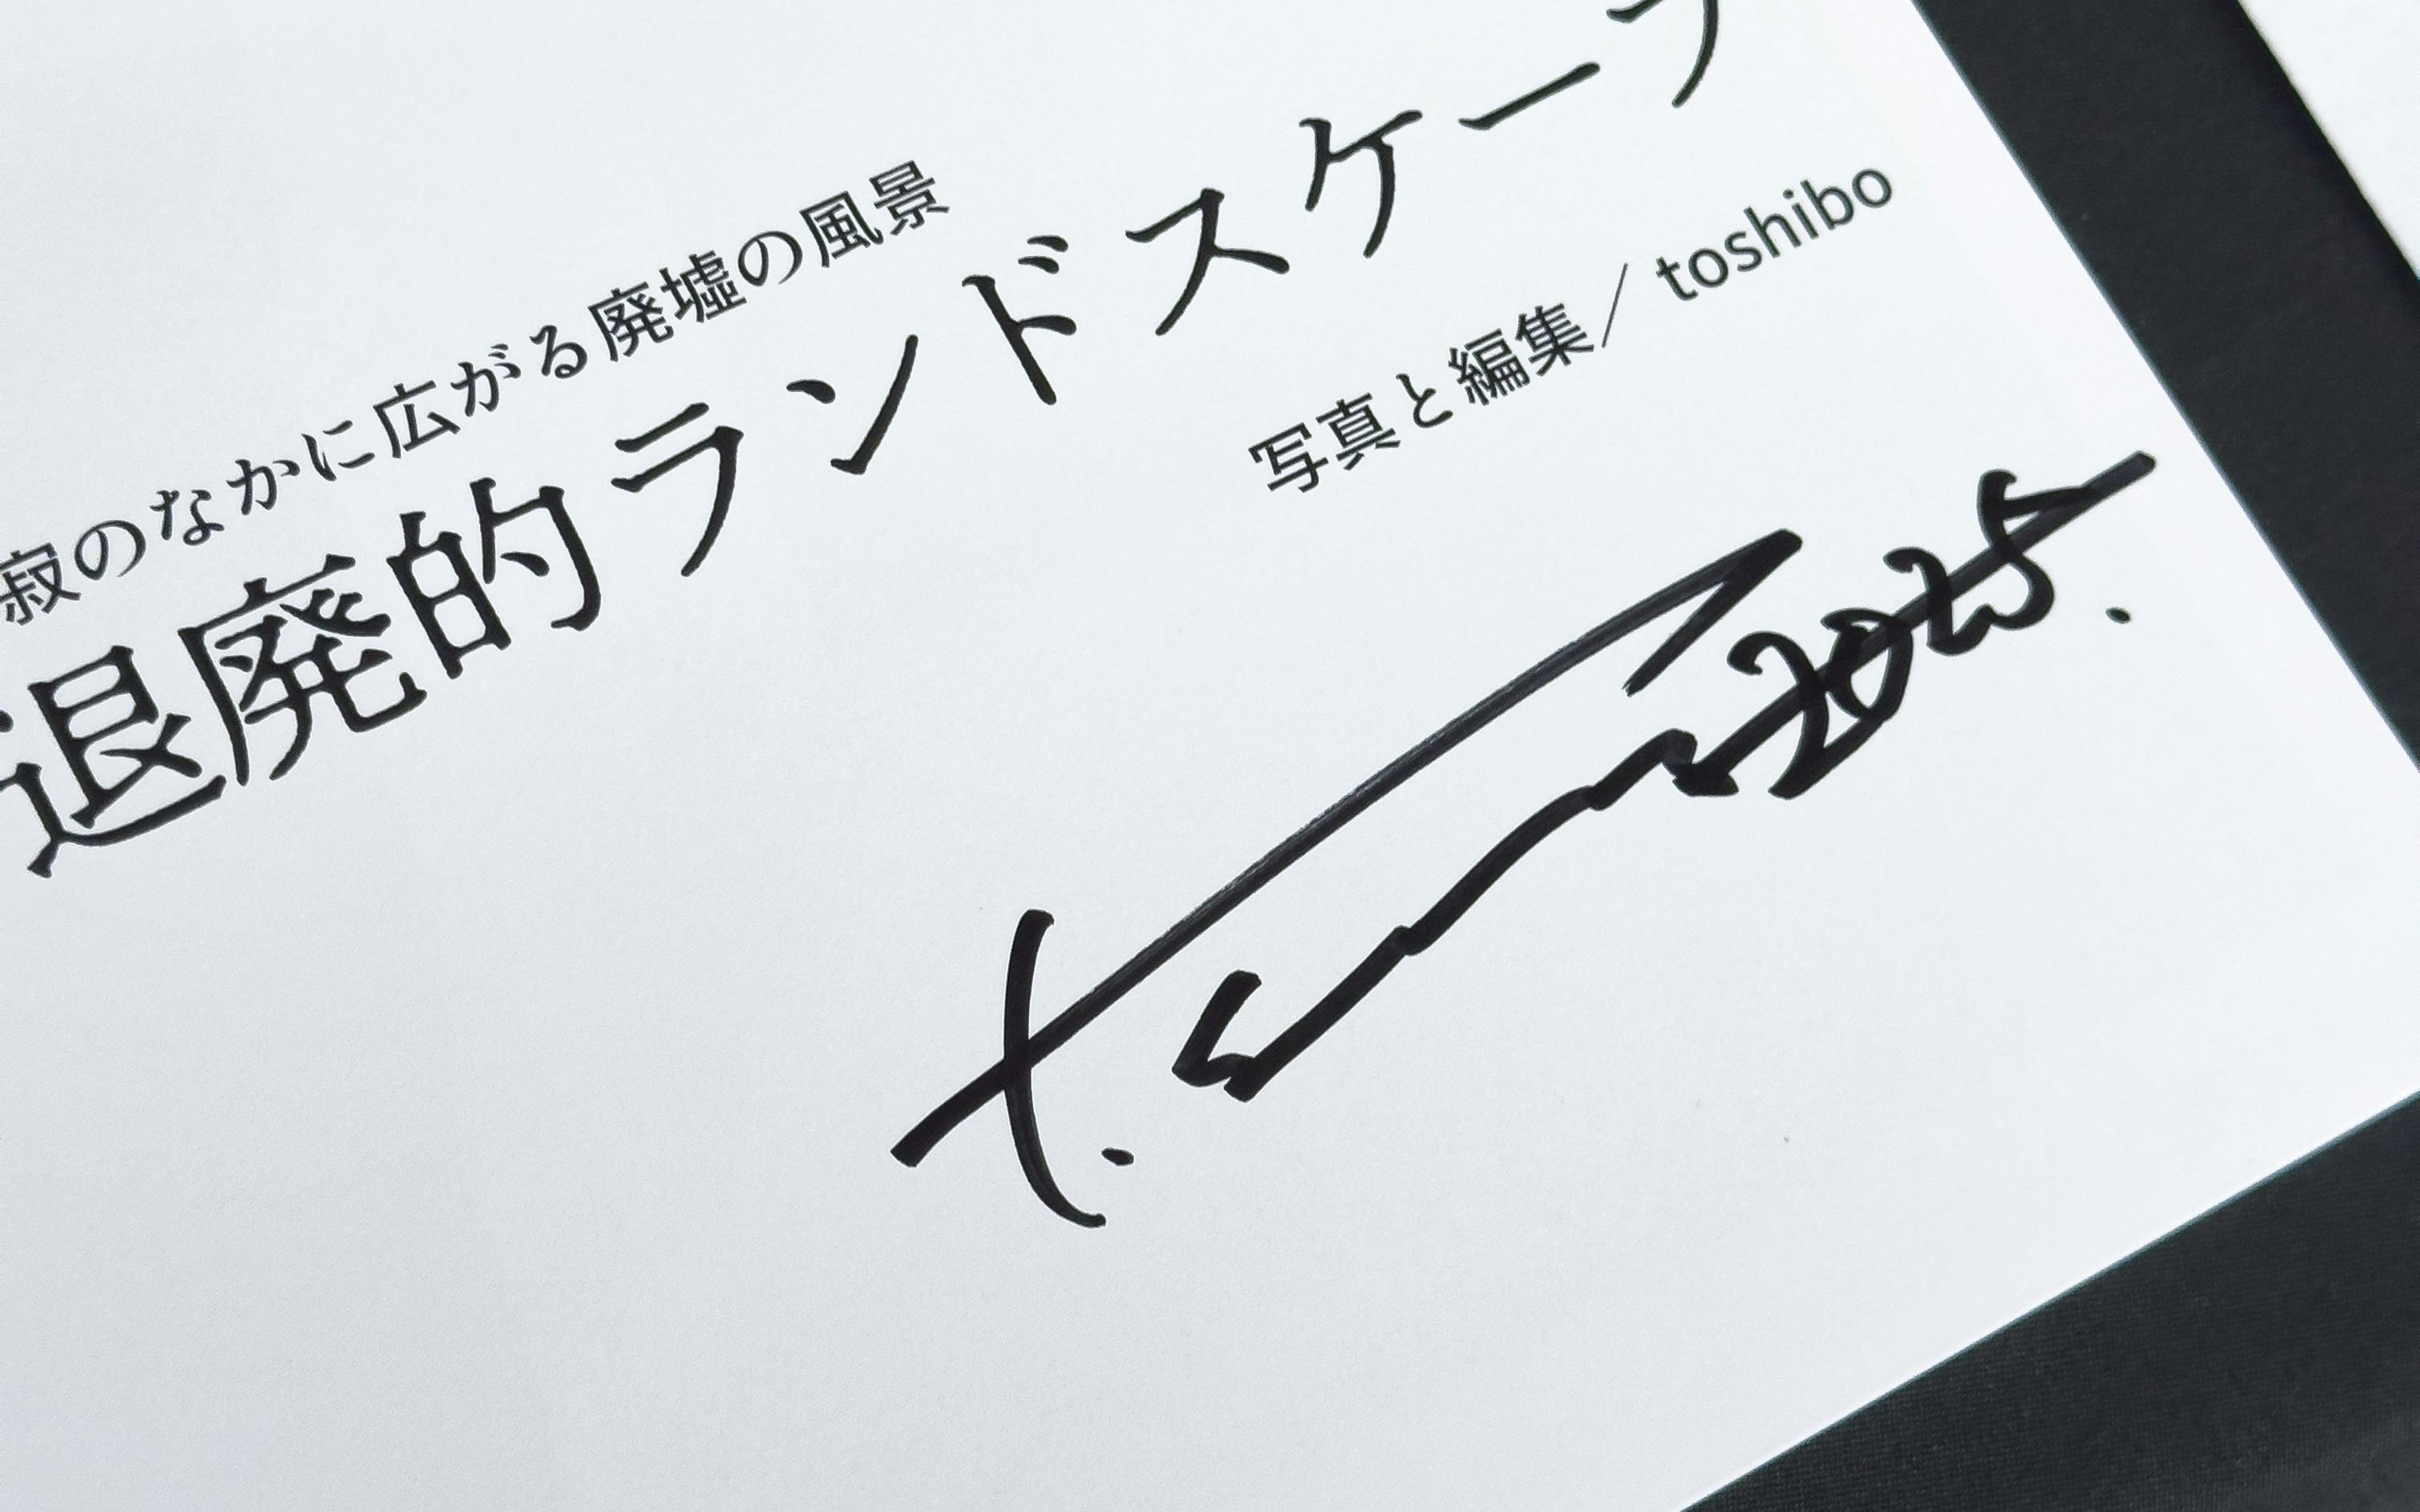 寂のなかに広がる廃墟の風景
退廃的ランドスケープ
写真と編集／ toshibo
2025.